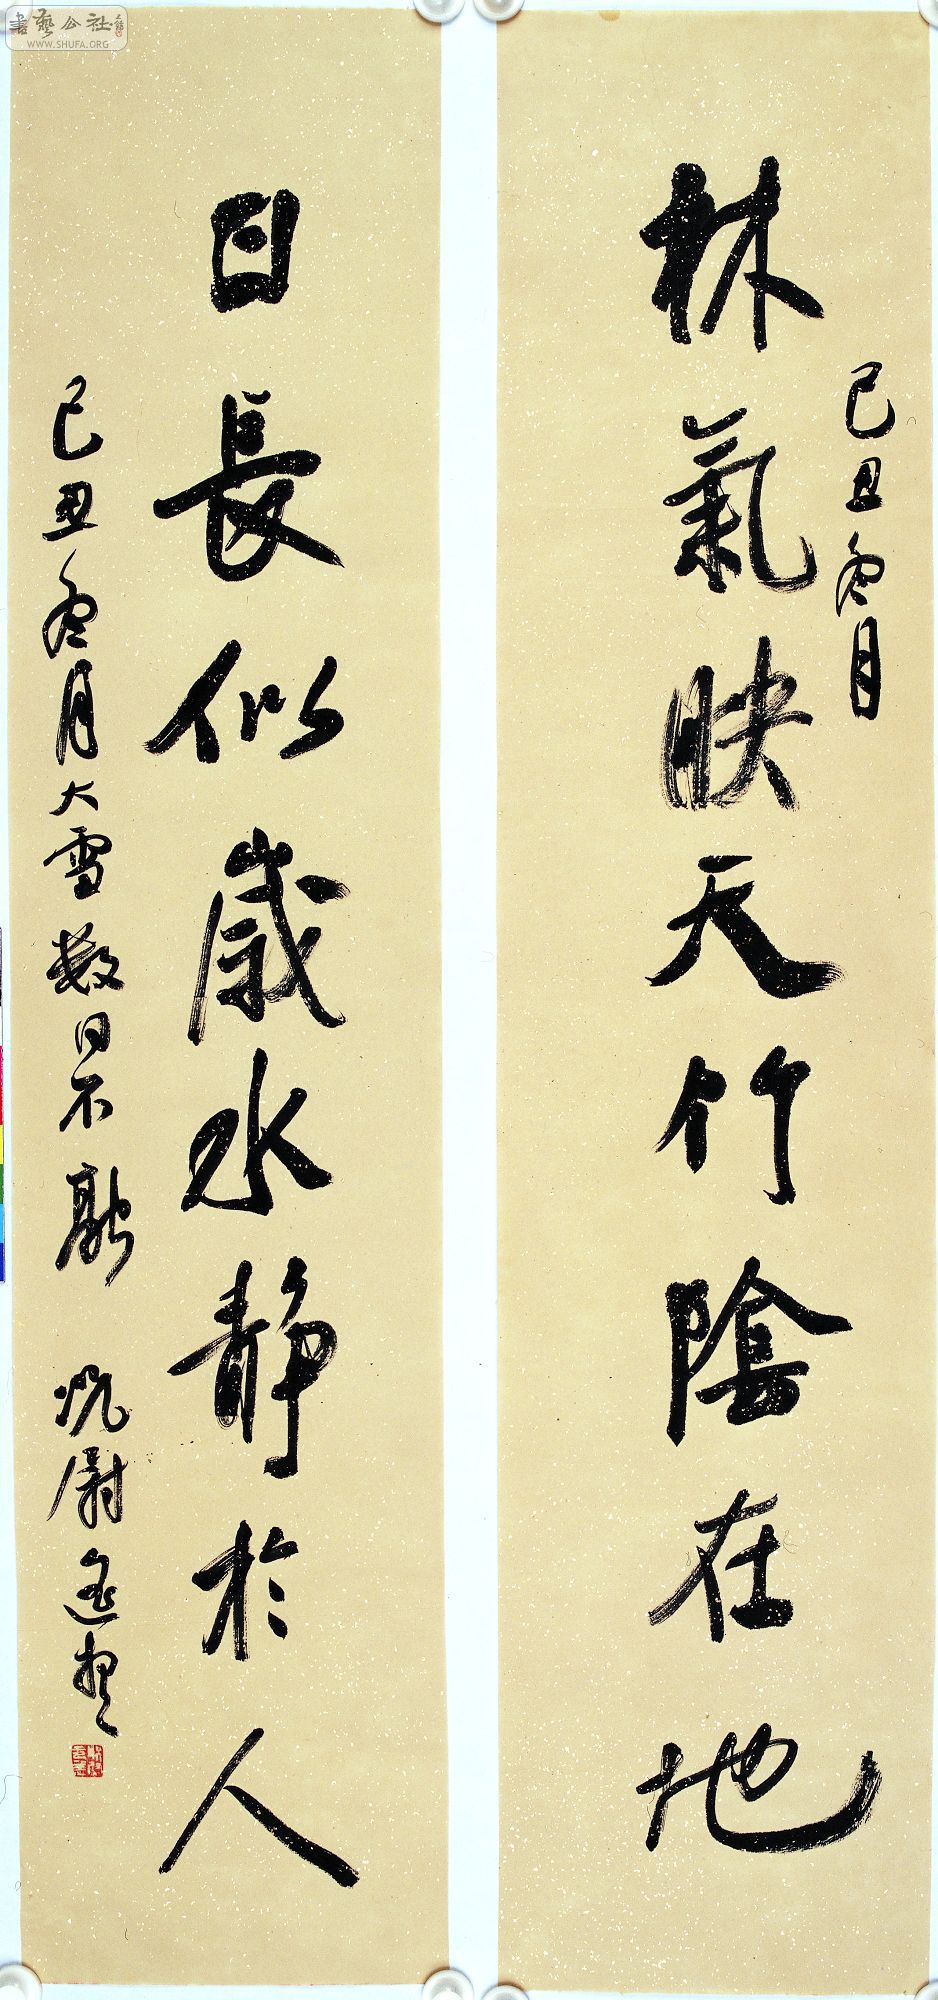 己丑冬月
林氣映天竹陰在地
日長似歲水靜於人
己丑冬月大雪數日不融
尉
書藝公社
WWW.SHUFA.ORG